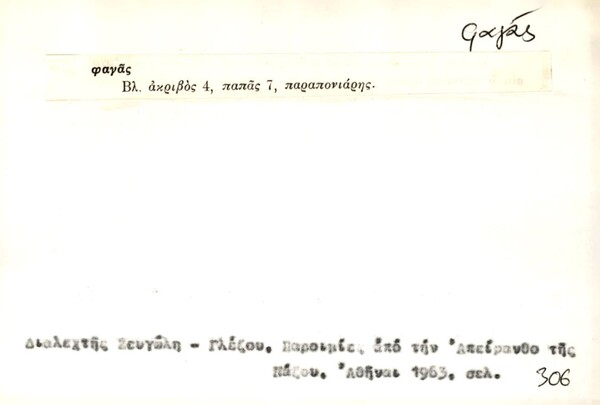 φαγάς
φαγᾶς
Βλ. ἀκριβὸς 4, παπᾶς 7, παραπονιάρης.
Διαλεχτῆς Ζευγώλη - Γλέζου, Παροιμίες ἀπό τήν Ἀπείρανθο τῆς
Νάξου, Ἀθῆναι 1963, σελ. 306